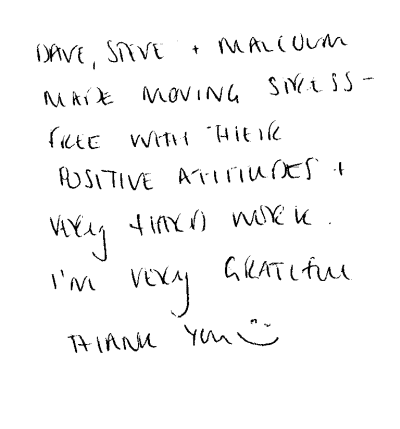 DAVE, STEVE + MALCOLM
MADE MOVING STRESS-
FREE WITH THEIR
POSITIVE ATTITUDES +
VERY HARD WORK.
I'M VERY GRATEFUL
THANK YOU